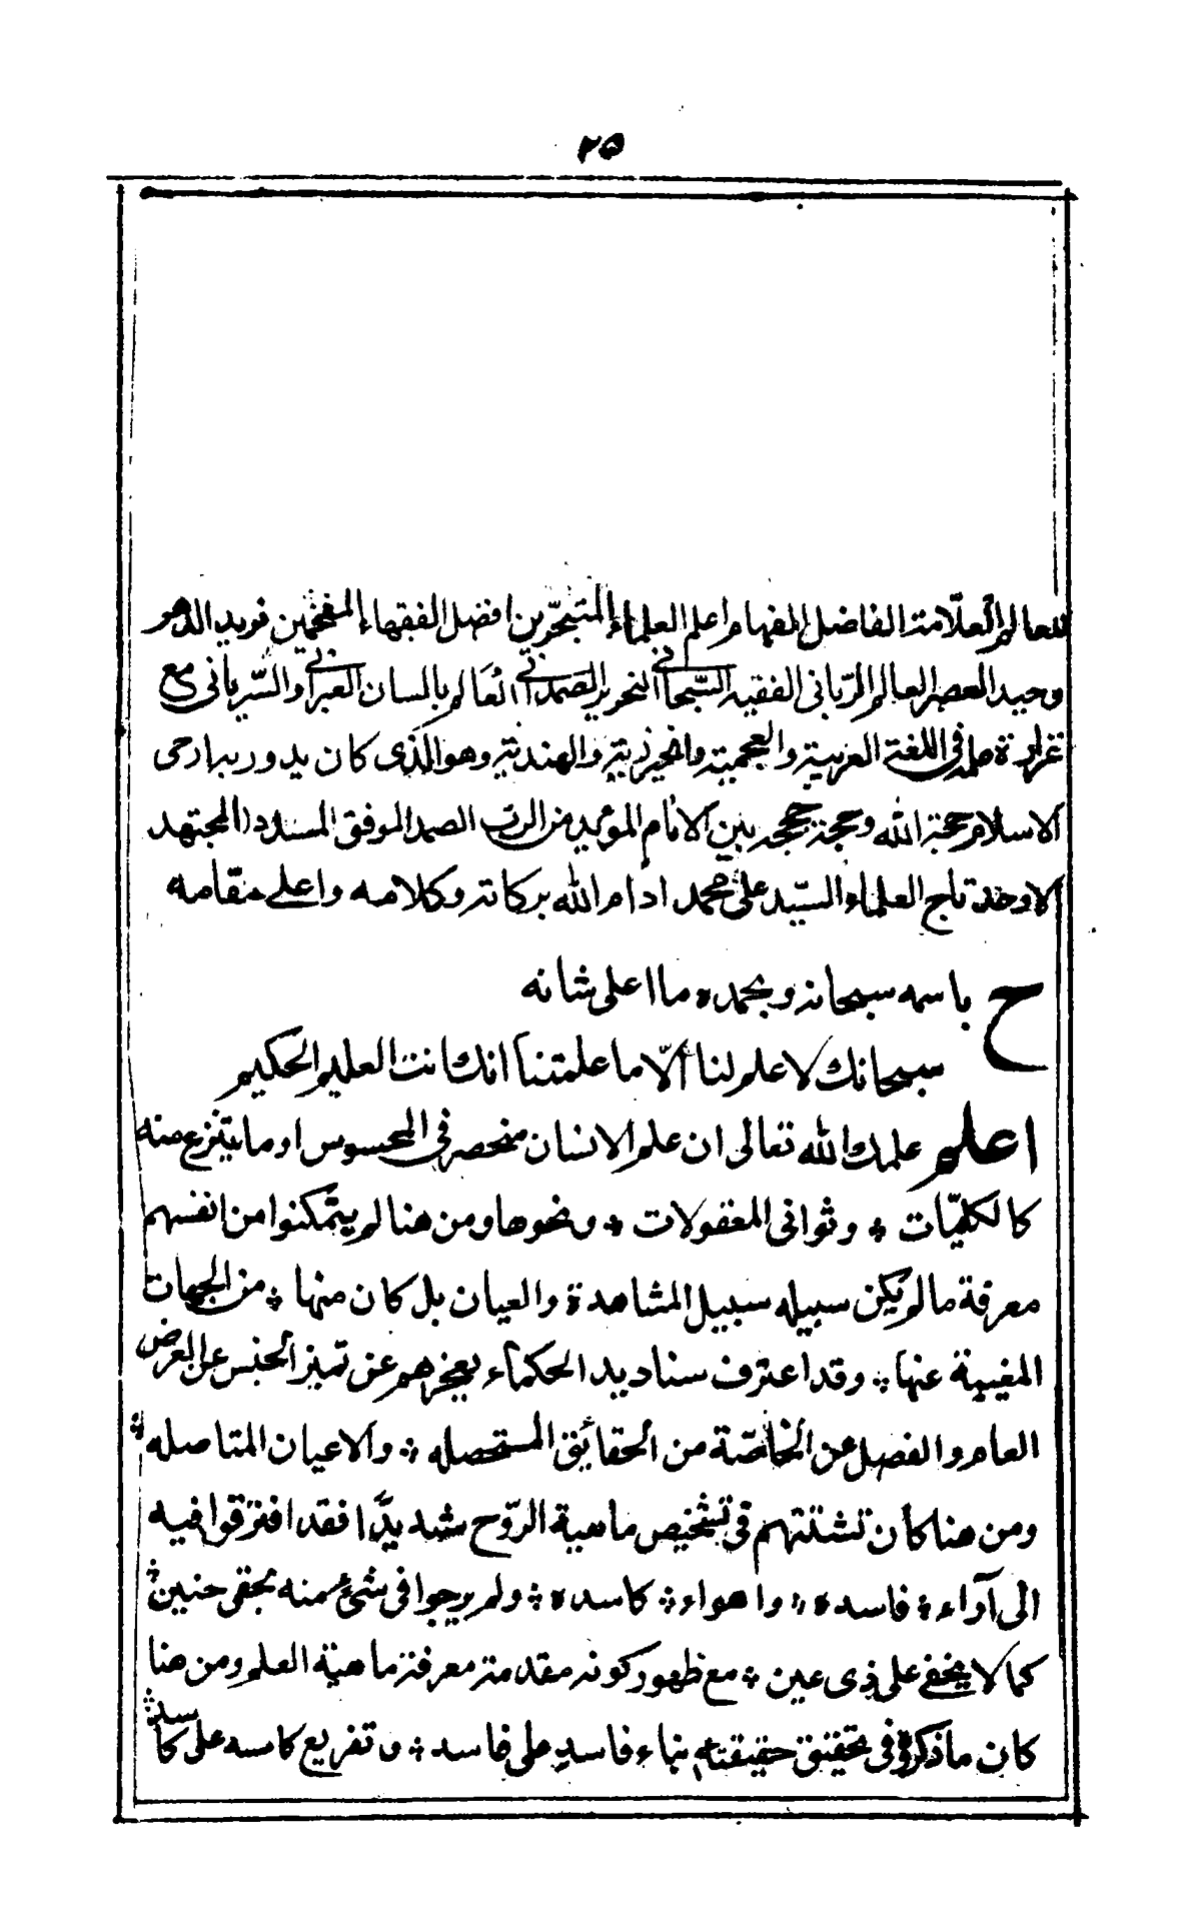 ٢٥
للعالم العلّامة الفاضل الفهام اعلم العلماء المتبحّرين افضل الفقهاء المفخمين فريد الدهر
وحيد العصر العالم الربّانى الفقيه السّبحانى النحرير الصمدانى العالم بالسان العبرانى والسّريانى مع
غزارة علمه فى اللغة العربية والعجمية والهندية وهو الذى كان يدور بها رحى
الاسلام حجة الله وحجة حججه بين الانام المؤيد من الرب الصمد الموفق المسدد المجتهد
الاوحد تاج العلماء السّيد على محمد ادام الله بركاته وكلامه واعلى مقامه
ح باسمه سبحانه وبحمده ما اعلى شانه
سبحانك لا علم لنا الّا ما علمتنا انك انت العليم الحكيم
اعلم علمك الله تعالى ان علم الانسان منحصر فى المحسوس او ما ينتزع منه
كالكليّات ٭ وثوانى المعقولات ٭ ونحوها ومن هنا لم يتمكنوا من انفسهم
معرفة ما لم يكن سبيله سبيل المشاهدة والعيان بل كان منها ٭ من الجهات
المغيبة عنها ٭ وقد اعترف سناديد الحكماء بعجزهم عن تميز الجنس عن العرض
العام والفصل عن الخاصّة من الحقايق المستحصله ٭ والاعيان المتاصله ٭
ومن هنا كان تشتتهم فى تشخيص ماهية الرّوح شديدًا فقد افترقوا فيه
الى آراء ٭ فاسده ٭ واهواء ٭ كاسده ٭ ولم يرجوا فى شئ منه بخفى حنين ٭
كما لا يخفى على ذى عين ٭ مع ظهور كونه مقدمة معرفة ماهية العلم ومن هنا
كان ما ذكروه فى تحقيق حقيقته بناء فاسد على فاسد ٭ وتفريع كاسد على كاسد ٭